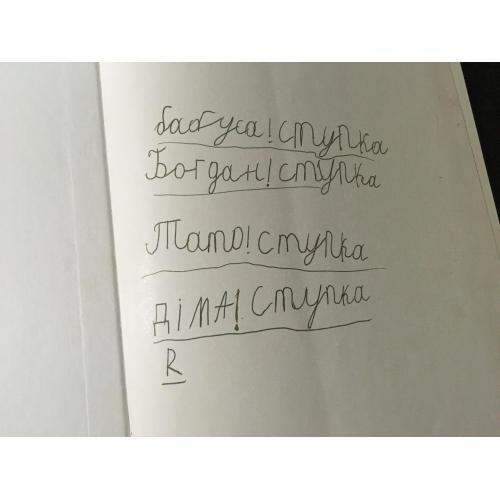 бабуся!ступка
Богдан!ступка
Тато!ступка
ДІМА!Ступка
R